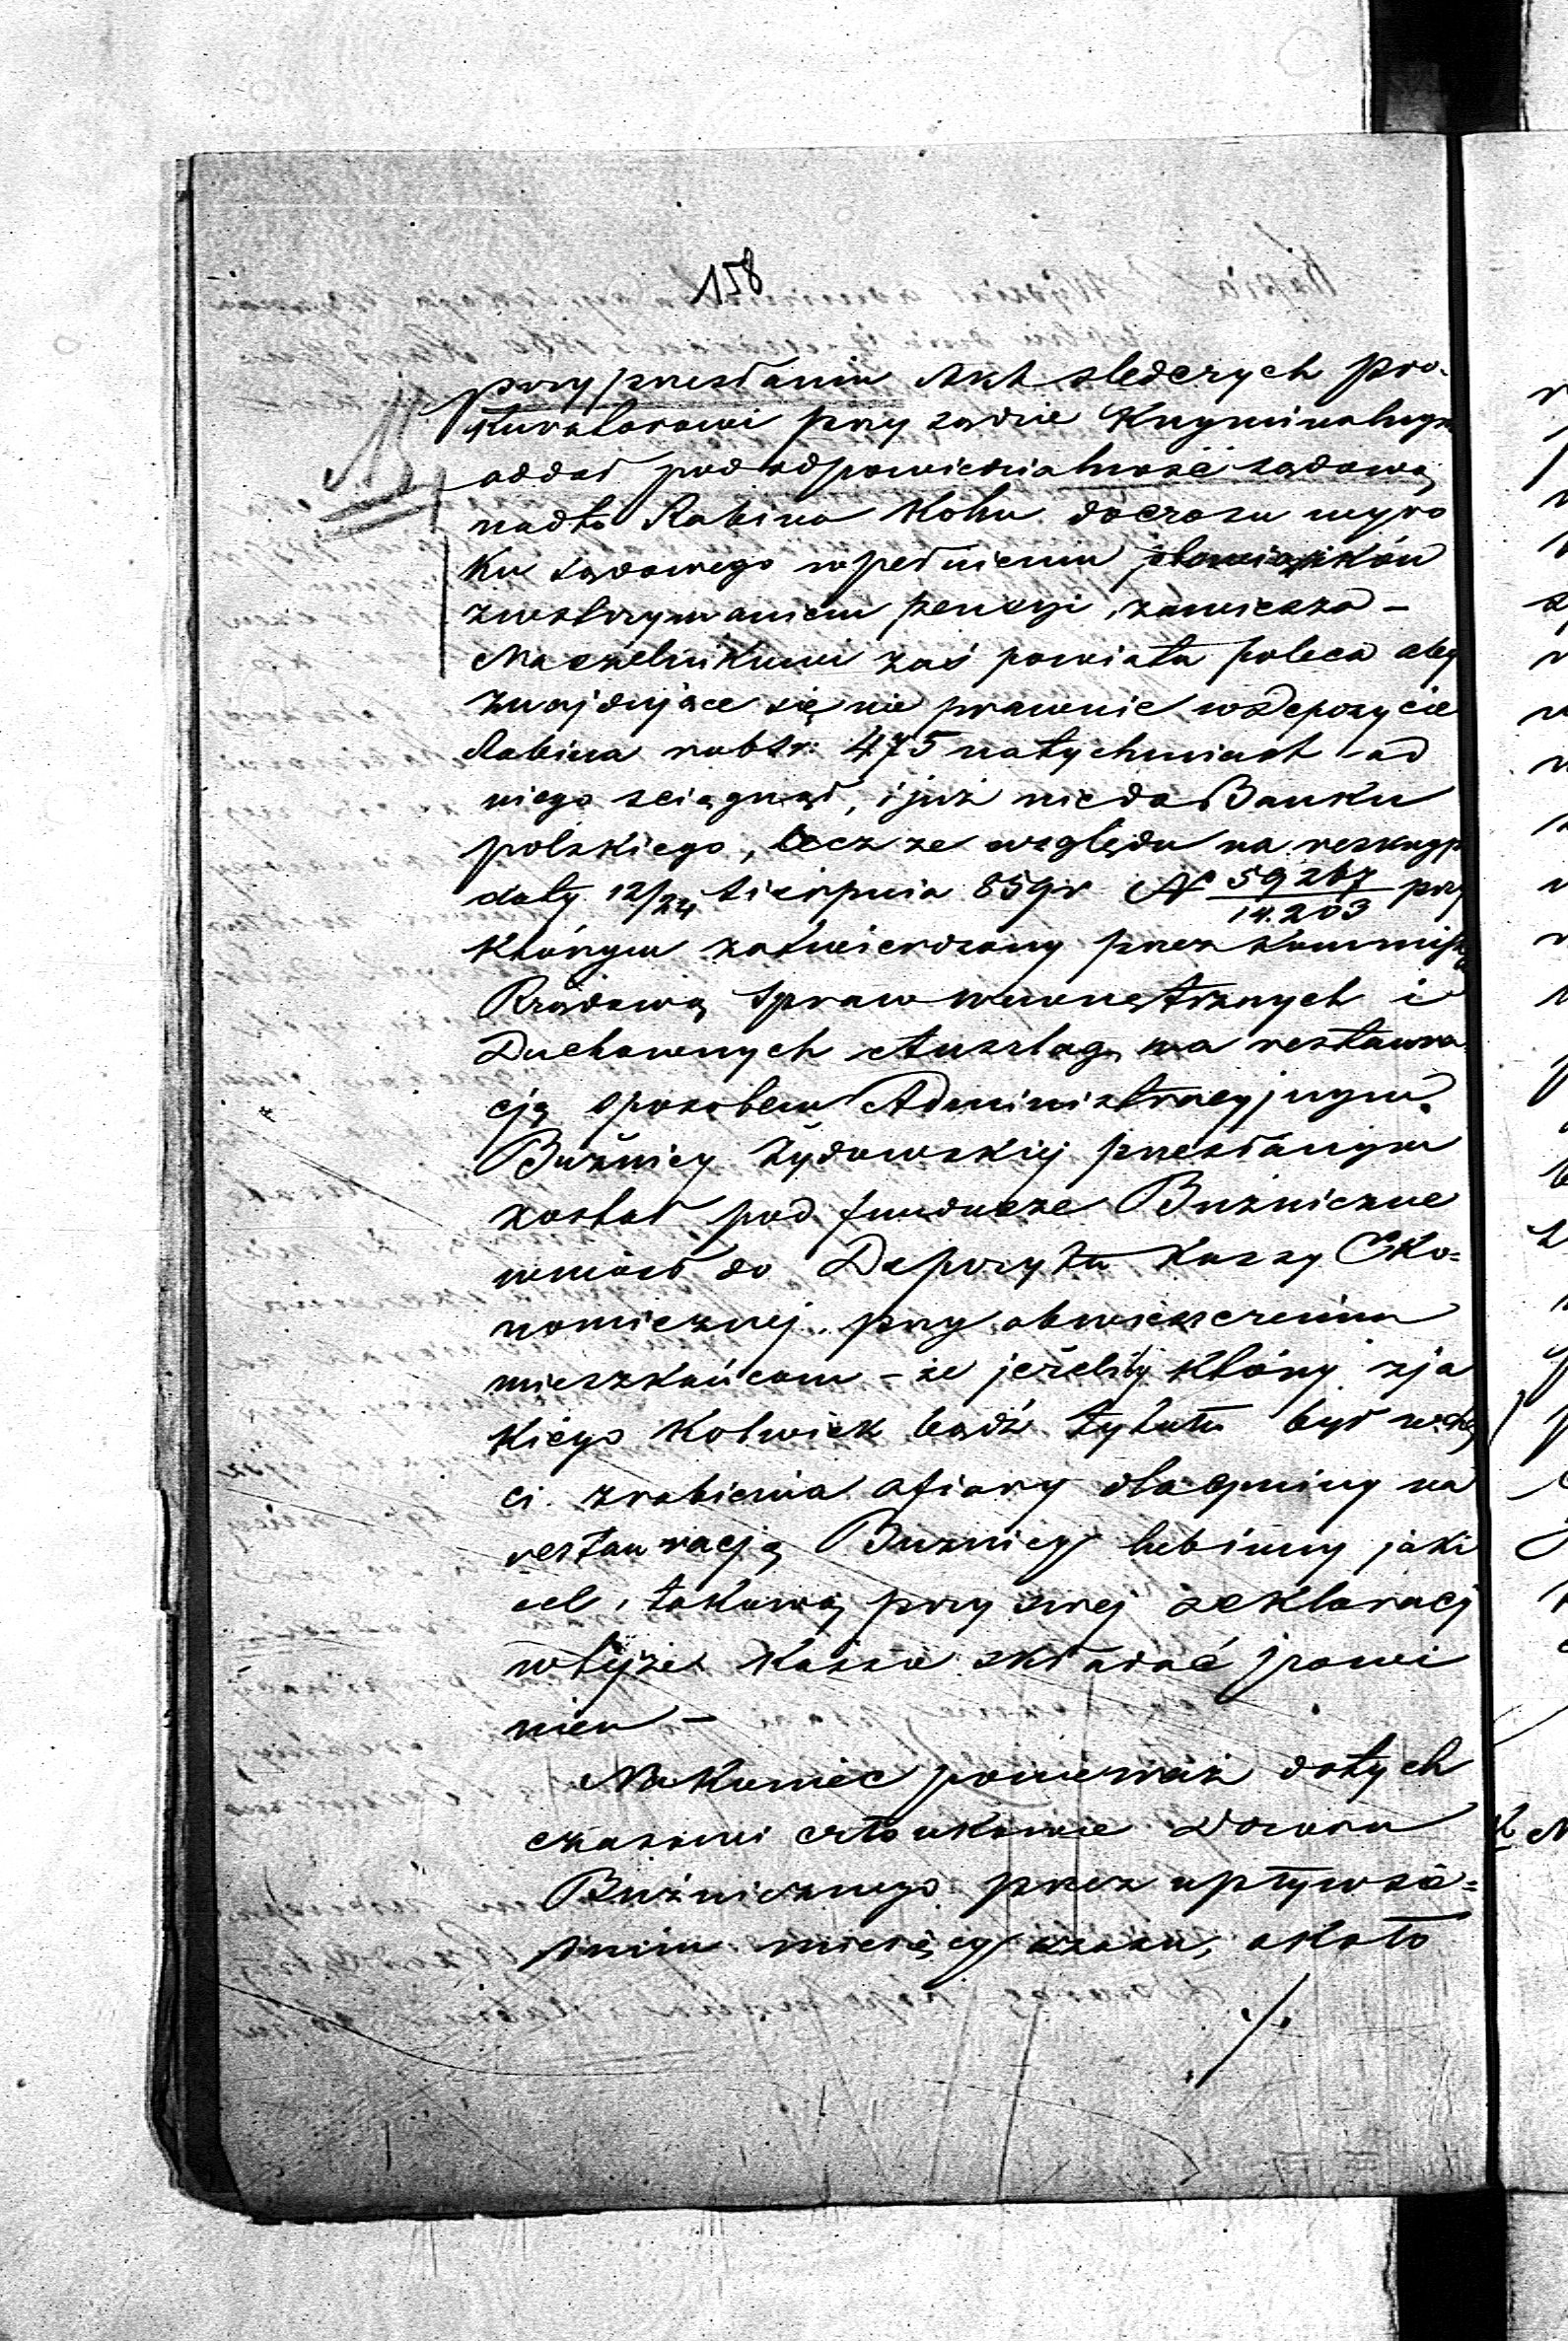 158
przyprzesłaniu Akt sledczych pro-
kuratorowi przy sądzie Kryminalnym
oddał pod odpowiedzialność sądową
nadto Rabina Kohn doczasu wyro
ku sądowego wpełnieniu obowiązków
zwstrzymaniem pensyi, zawiesza –
Naczelnikowi zaś powiatu poleca aby
znajdujące się nie prawnie wdepozycie
Rabina rubsr: 475 natychmiast od
niego sciągnął, i już niedo Banku
polskiego, lecz ze względu na reskryp
daty 12/24 Sierpnia 859r N 59267/14.203 przy
którym zatwierdzony przez Kommissyą
Rządową Spraw wewnętrznych i
Duchownych Anszlag na restaura
cją sposobem Administracyjnym
Bużnicy żydowskiej przesłanym
został pod fundusze Bużniczne
wniósł do Depozytu Kassy Eko=
nomicznej przy obwieszczeniu
mieszkańcom – że jeżeliby który zja
kiego kolwiek bądź tytułu był wchę
ci zrobienia ofiary dla gminy na
restauracją Bużnicy lubinny jaki
cel, takową przy swej deklaracyi
wtejże Kassie składać powi
nien –
Nakoniec ponieważ dotych
czasowi członkowie Dozoru
Bużnicznego przez upływ sie=
dmiu miesięcy czasu, około
./.